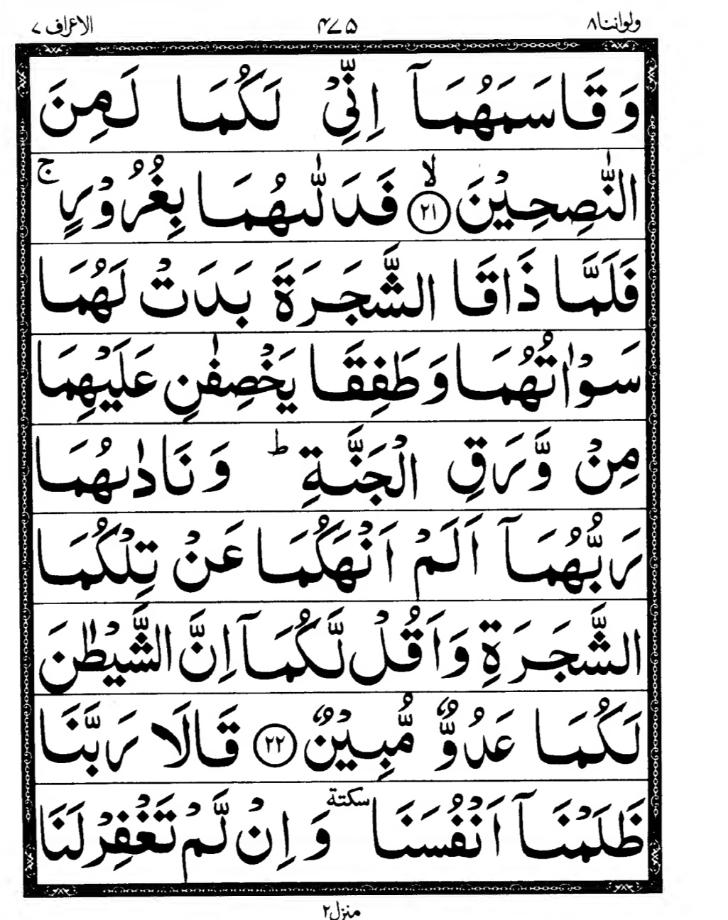 ولواننا٨ ۴۷۵ الاعراف ٧
وَقَاسَمَهُمَآ اِنِّيْ لَكُمَا لَمِنَ
النّٰصِحِيْنَ ۙ‏﴿۲۱﴾ فَدَلّٰىهُمَا بِغُرُوْرٍ ۚ
فَلَمَّا ذَاقَا الشَّجَرَةَ بَدَتْ لَهُمَا
سَوْاٰتُهُمَا وَطَفِقَا يَخْصِفٰنِ عَلَيْهِمَا
مِنْ وَّرَقِ الْجَنَّةِ ؕ وَنَادٰىهُمَا
رَبُّهُمَآ اَلَمْ اَنْهَكُمَا عَنْ تِلْكُمَا
الشَّجَرَةِ وَاَقُلْ لَّكُمَآ اِنَّ الشَّيْطٰنَ
لَكُمَا عَدُوٌّ مُّبِيْنٌ ﴿۲۲﴾ قَالَا رَبَّنَا
ظَلَمْنَآ اَنْفُسَنَا سكتة وَ اِنْ لَّمْ تَغْفِرْ لَنَا
منزل۲